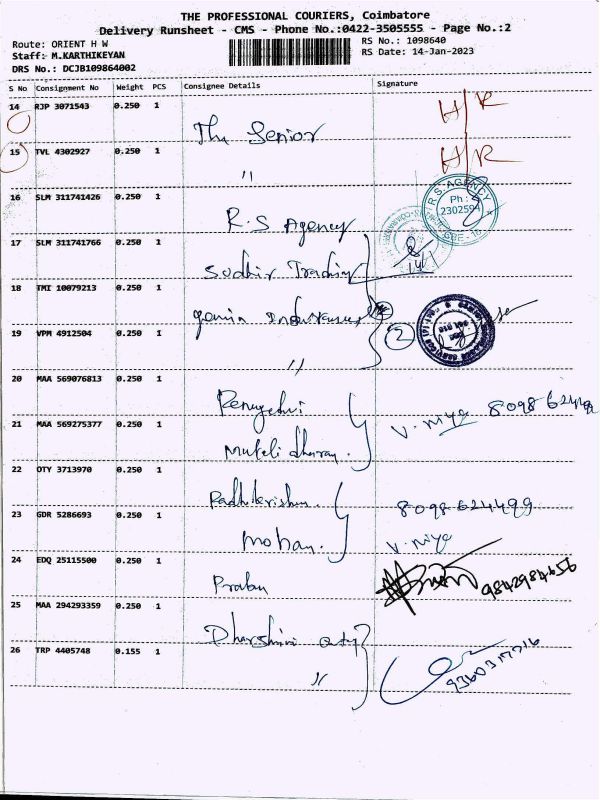 THE PROFESSIONAL COURIERS, Coimbatore
Delivery Runsheet - CMS - Phone No.:0422-3505555 - Page No.:2
Route: ORIENT H W
RS No.: 1098640
Staff: M.KARTHIKEYAN
RS Date: 14-Jan-2023
DRS No.: DCJB109864002
S No Consignment No Weight PCS Consignee Details Signature
14 RJP 3071543 0.250 1
H/R
The Senior
15 TVL 4302927 0.250 1
H/R
"
16 SLM 311741426 0.250 1
R.S. AGENCY
Ph :
2302594
R.S Agency
17 SLM 311741766 0.250 1
Sudhir Trading
18 TMI 10079213 0.250 1
19 VPM 4912504 0.250 1
2
"
20 MAA 569076813 0.250 1
V. Niya
21 MAA 569275377 0.250 1
22 OTY 3713970 0.250 1
8098624499
23 GDR 5286693 0.250 1
Mohan.
V. Niya
24 EDQ 25115500 0.250 1
9842984656
25 MAA 294293359 0.250 1
26 TRP 4405748 0.155 1
"